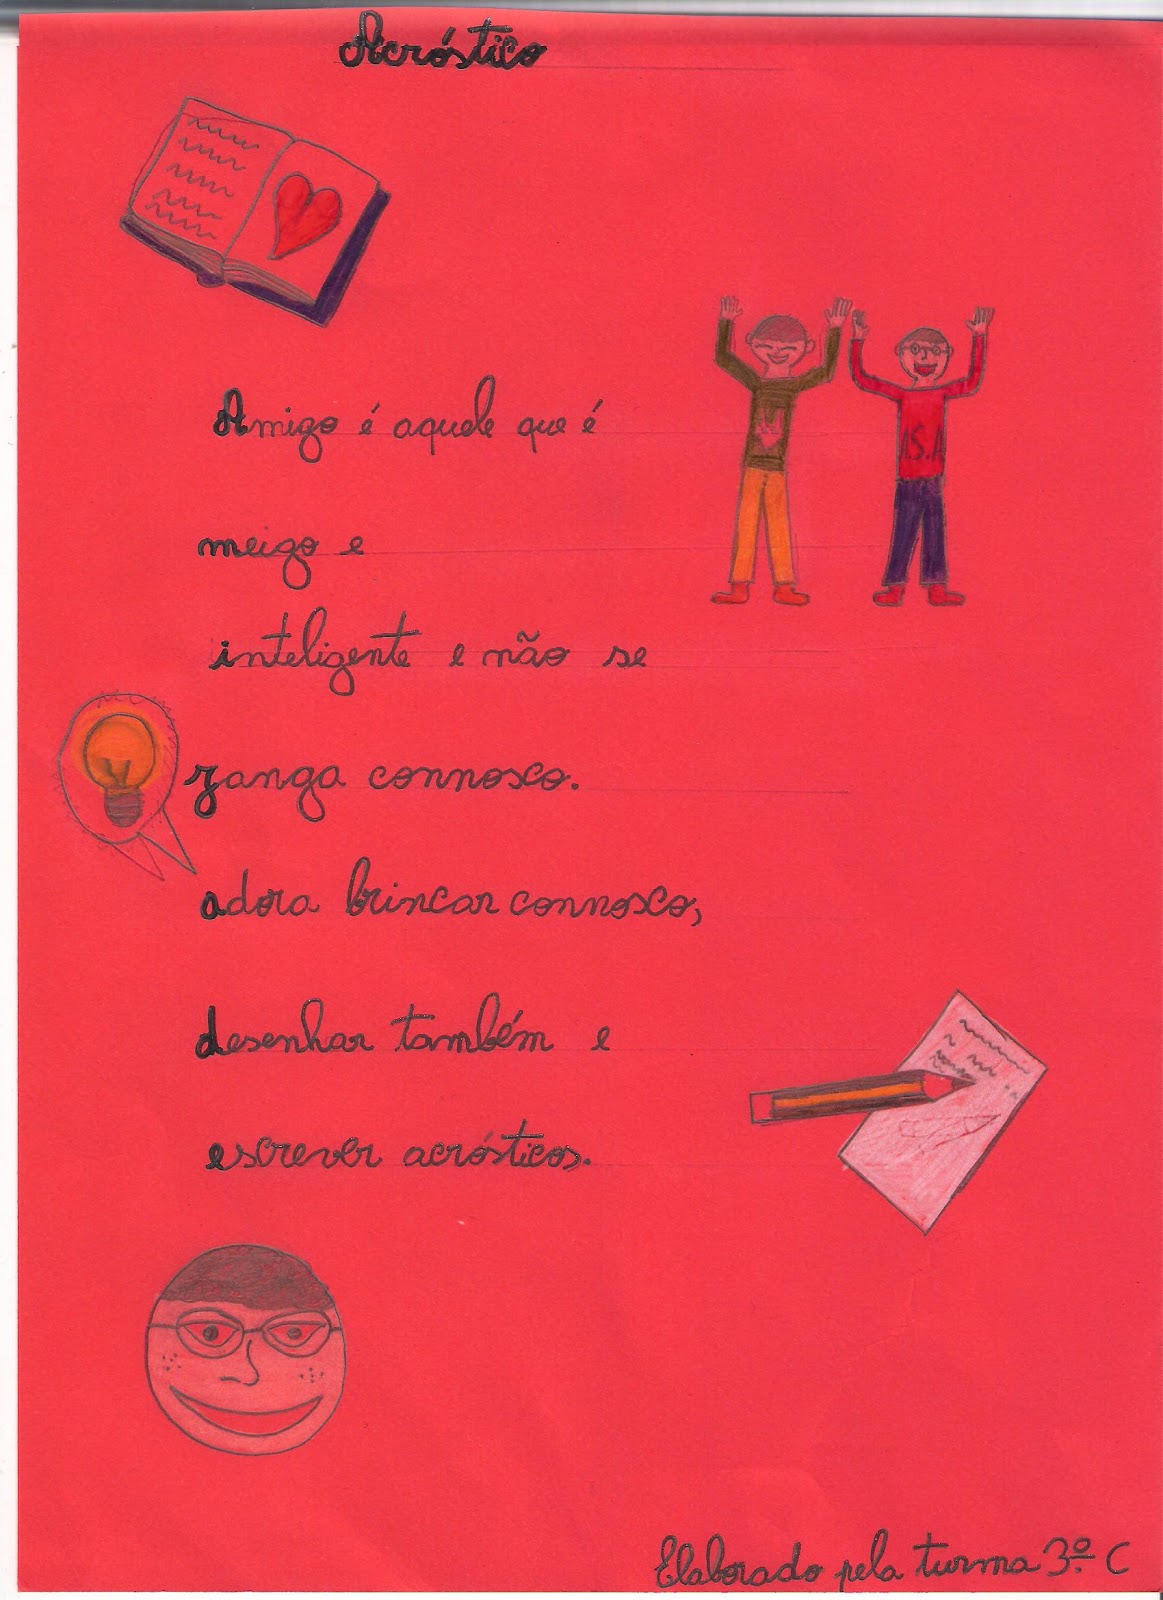 Acróstico
Amigo é aquele que é
meigo e
inteligente e não se
zanga connosco.
adora brincar connosco,
desenhar também e
escrever acrósticos.
Elaborado pela turma 3.º C